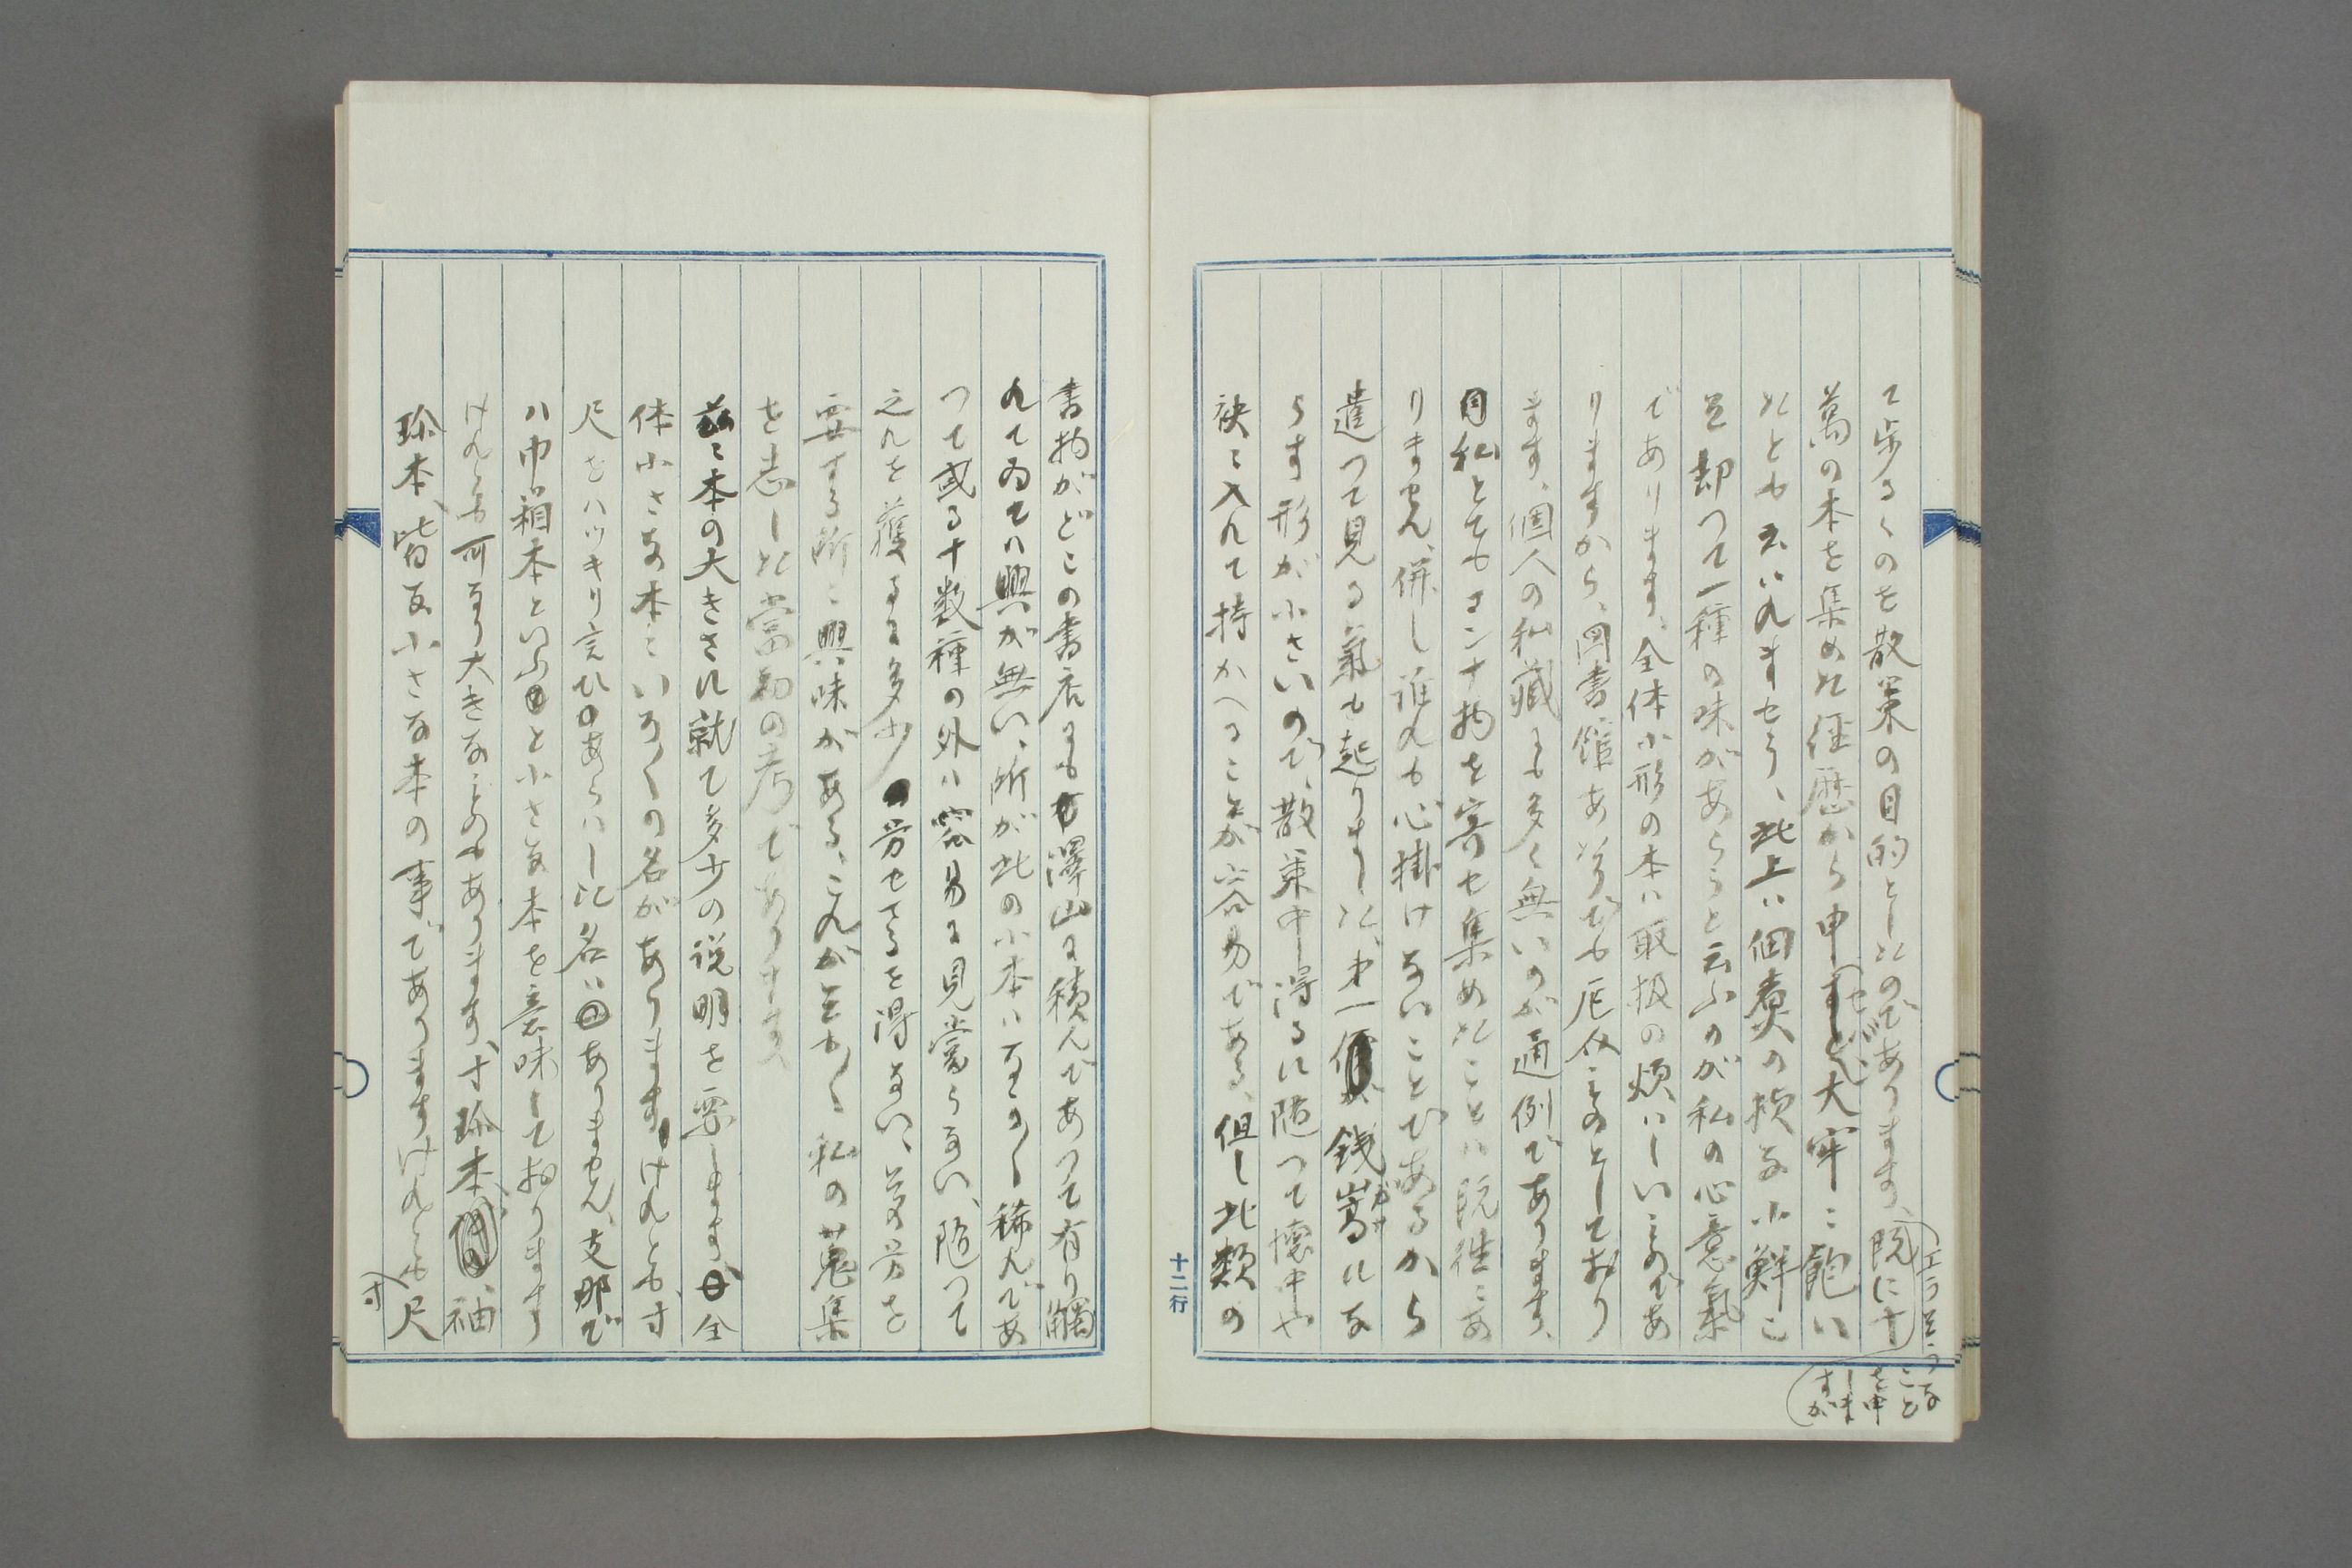 て歩るくのを散策の目的としたのであります、既に十
エラさうな
こと
を申
しま
すが
萬の本を集めた径歴から申すと(せば)大牢に飽い
たとも云はれませう、此上は個煑の様な小鮮こ
そ却つて一種の味があらうと云ふのが私の心意氣
であります、全体小形の本は取扱の煩はしいものであ
りますから、図書館あたりでも厄介ものとしており
ます、個人の私藏にも多く無いのが通例であります、
私とてもコンナ物を寄せ集めたことは既徃にあ
りません、併し誰れも心掛けないことであるから
遣つて見る氣も起りました、第一價が銭嵩にな
らす形が小さいので、散策中得るに随つて懐中や
袂に入れて持かへることが容易である、但し此類の
十二行
書物がどこの書店にも澤山に積んであつて有り觸
れてゐては興が無い、所が此の小本はなか〳〵稀れであ
つて或る十数種の外は容易に見當らない、随つて
之れを獲るに多少の労せざるを得ない、其労を
要する所に興味がある、これが そも〳〵私の蒐集
を志した當初の考であります
茲に本の大きさに就て多少の説明を要します、全
体小さな本にいろ〳〵の名があります、けれとも、寸
尺をハッキリ言ひあらはした名はありません、支那で
ハ巾箱本といふと小さな本を意味しております
けれとも可なり大きなものもあります、寸珍本、袖
珍本、皆な小さな本の事でありますけれとも尺
寸